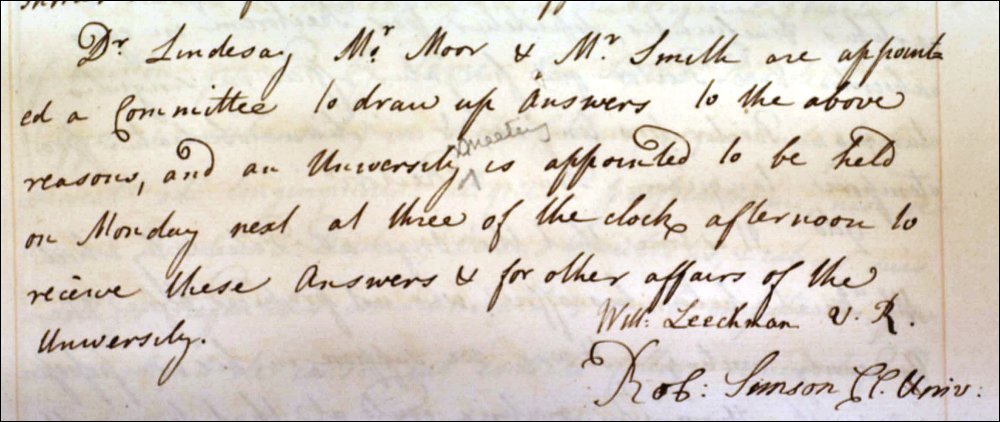 Dr. Lindesay Mr. Moor & Mr. Smith are appoint
ed a Committee to draw up Answers to the above
reasons, and an University ^meeting is appointed to be held
on Monday next at three of the clock afternoon to
receive these Answers & for other affairs of the
University.
Will: Leechman V. R.
Rob: Simson Cl. Univ: